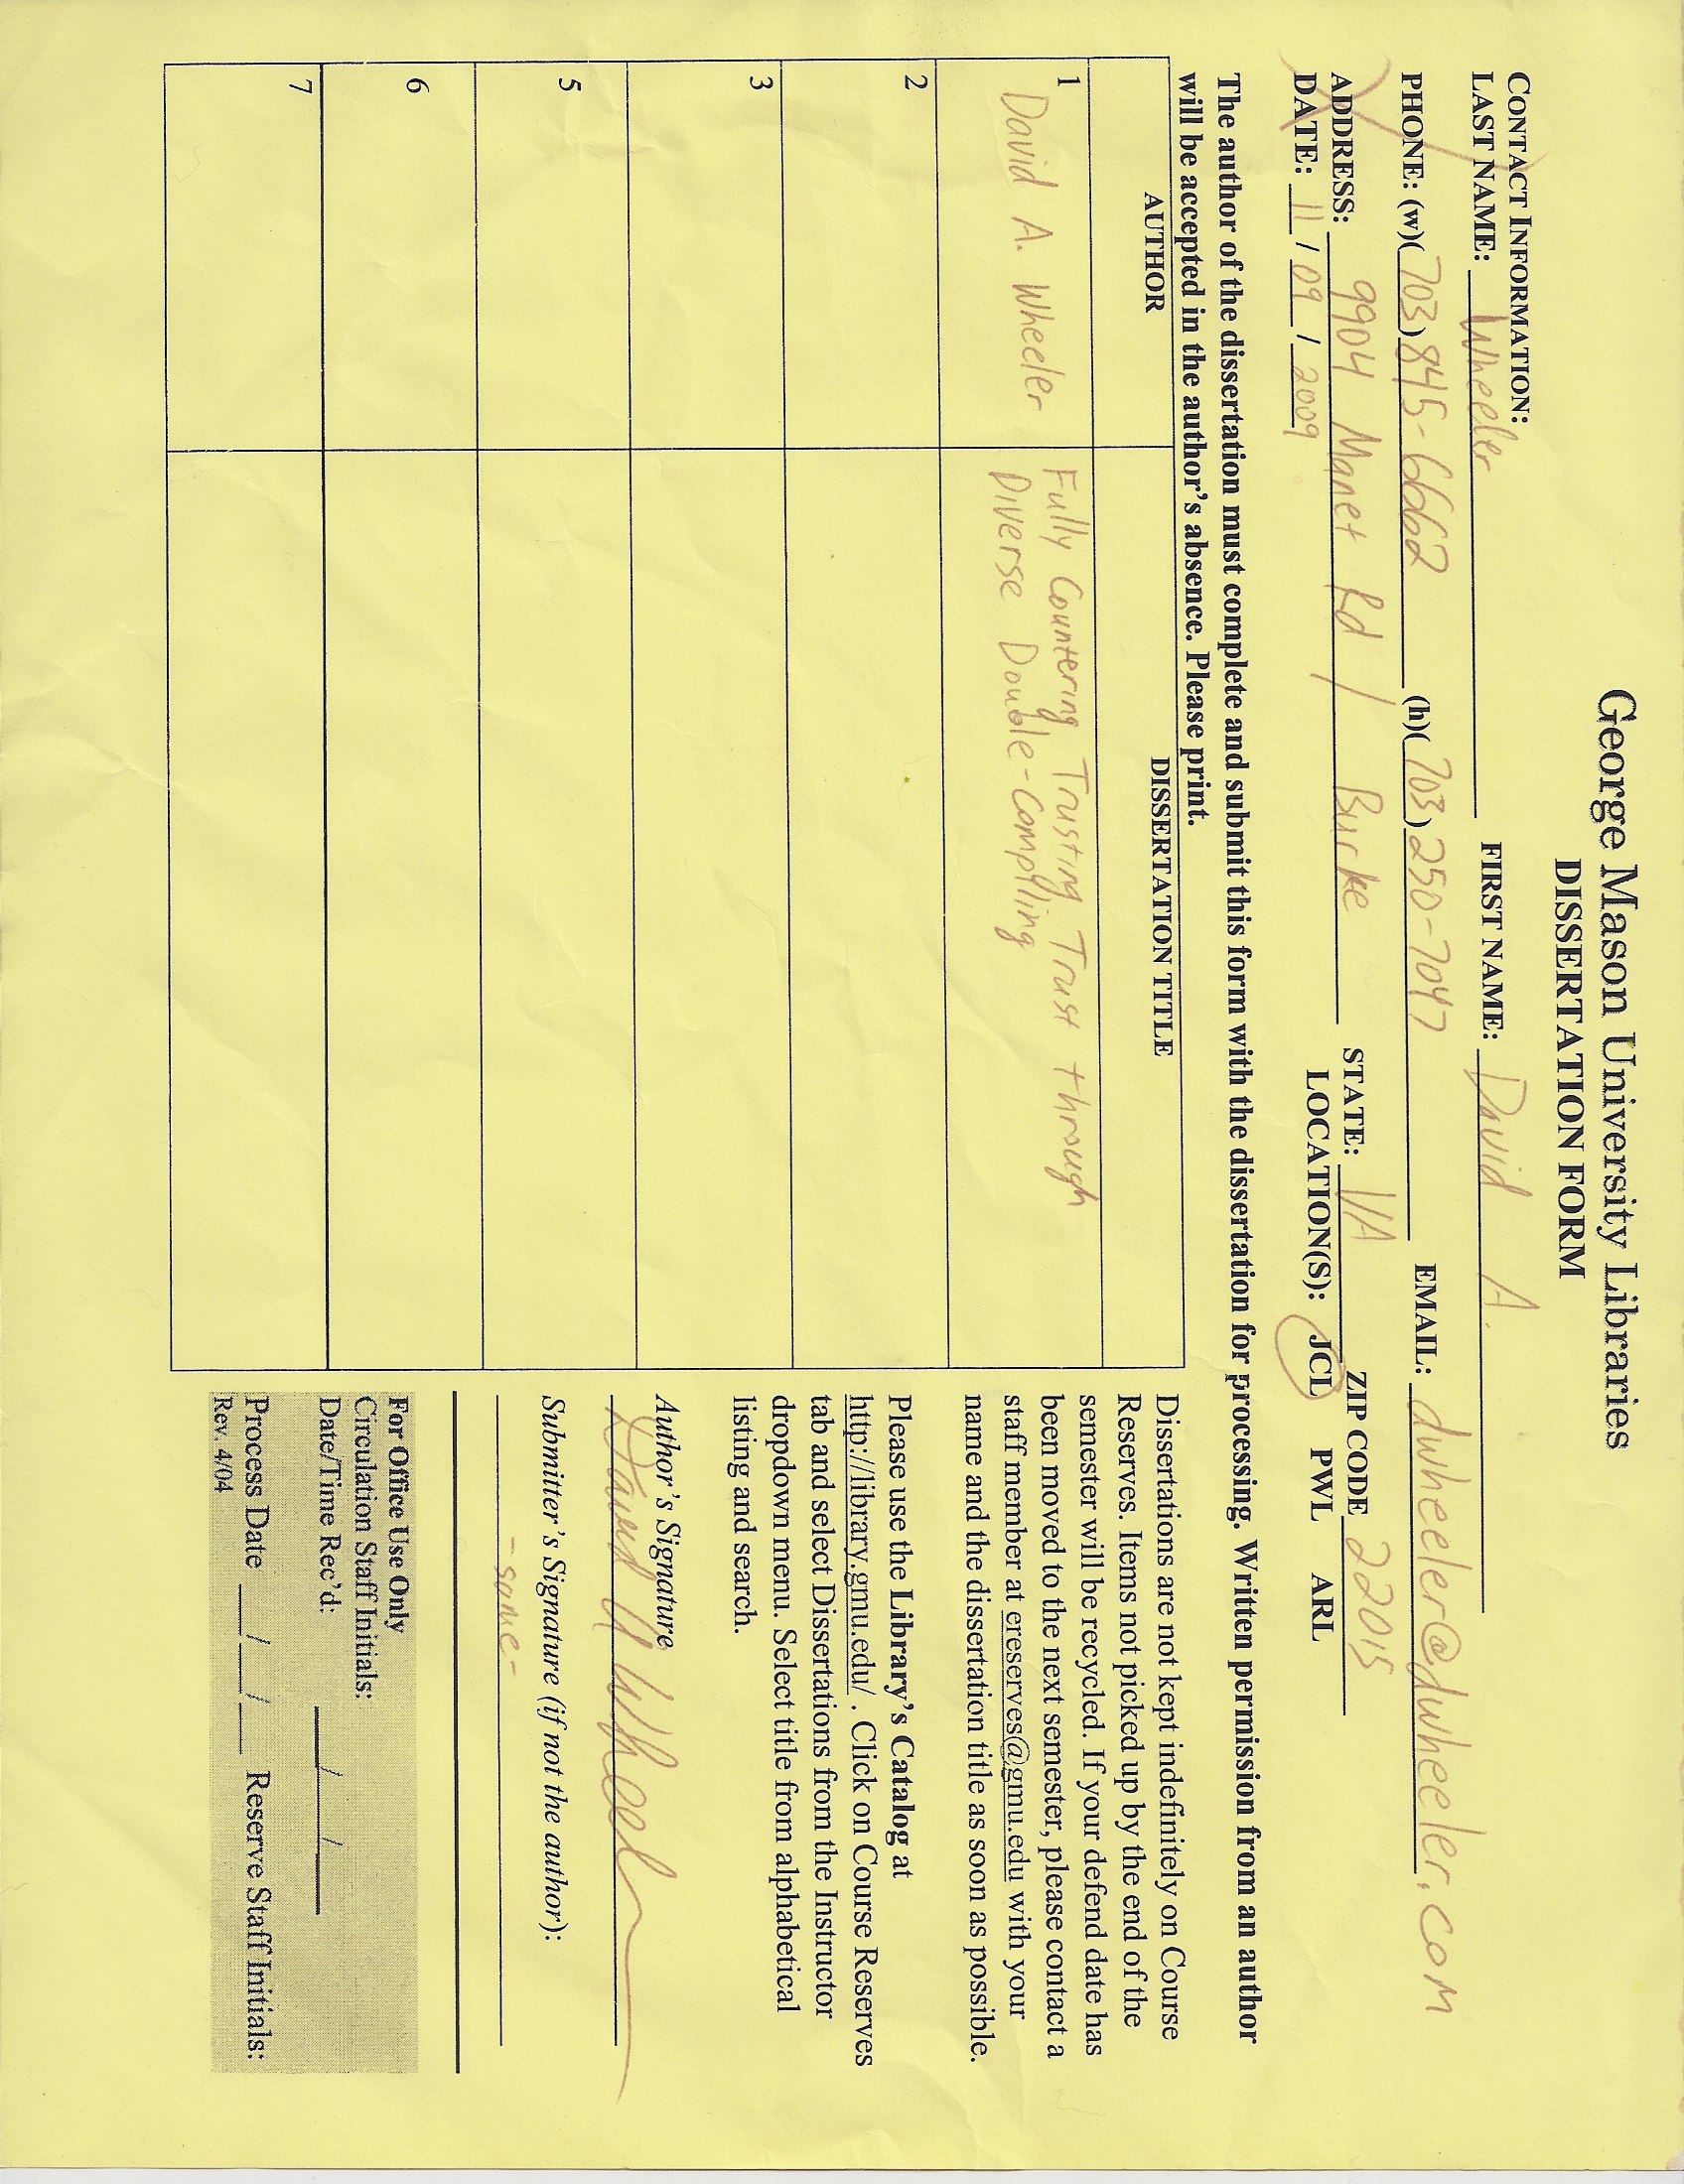 George Mason University Libraries
DISSERTATION FORM
CONTACT INFORMATION:
LAST NAME: Wheeler FIRST NAME: David A.
PHONE: (w)(703)845-6662 (h)(703)250-7047 EMAIL: dwheeler@dwheeler.com
ADDRESS: 9904 Manet Rd / Burke STATE: VA ZIP CODE 22015
DATE: 11/09/2009 LOCATION(S): JCL PWL ARL
The author of the dissertation must complete and submit this form with the dissertation for processing. Written permission from an author
will be accepted in the author's absence. Please print.
AUTHOR DISSERTATION TITLE
1 David A. Wheeler Fully Countering Trusting Trust through
Diverse Double-Compiling
2
3
5
6
7
Dissertations are not kept indefinitely on Course
Reserves. Items not picked up by the end of the
semester will be recycled. If your defend date has
been moved to the next semester, please contact a
staff member at ereserves@gmu.edu with your
name and the dissertation title as soon as possible.
Please use the Library's Catalog at
http://library.gmu.edu/ . Click on Course Reserves
tab and select Dissertations from the Instructor
dropdown menu. Select title from alphabetical
listing and search.
Author's Signature
David A Wheeler
Submitter's Signature (if not the author):
- same -
For Office Use Only
Circulation Staff Initials:
Date/Time Rec'd: ___/___/___
Process Date ___/___/___ Reserve Staff Initials:
Rev. 4/04